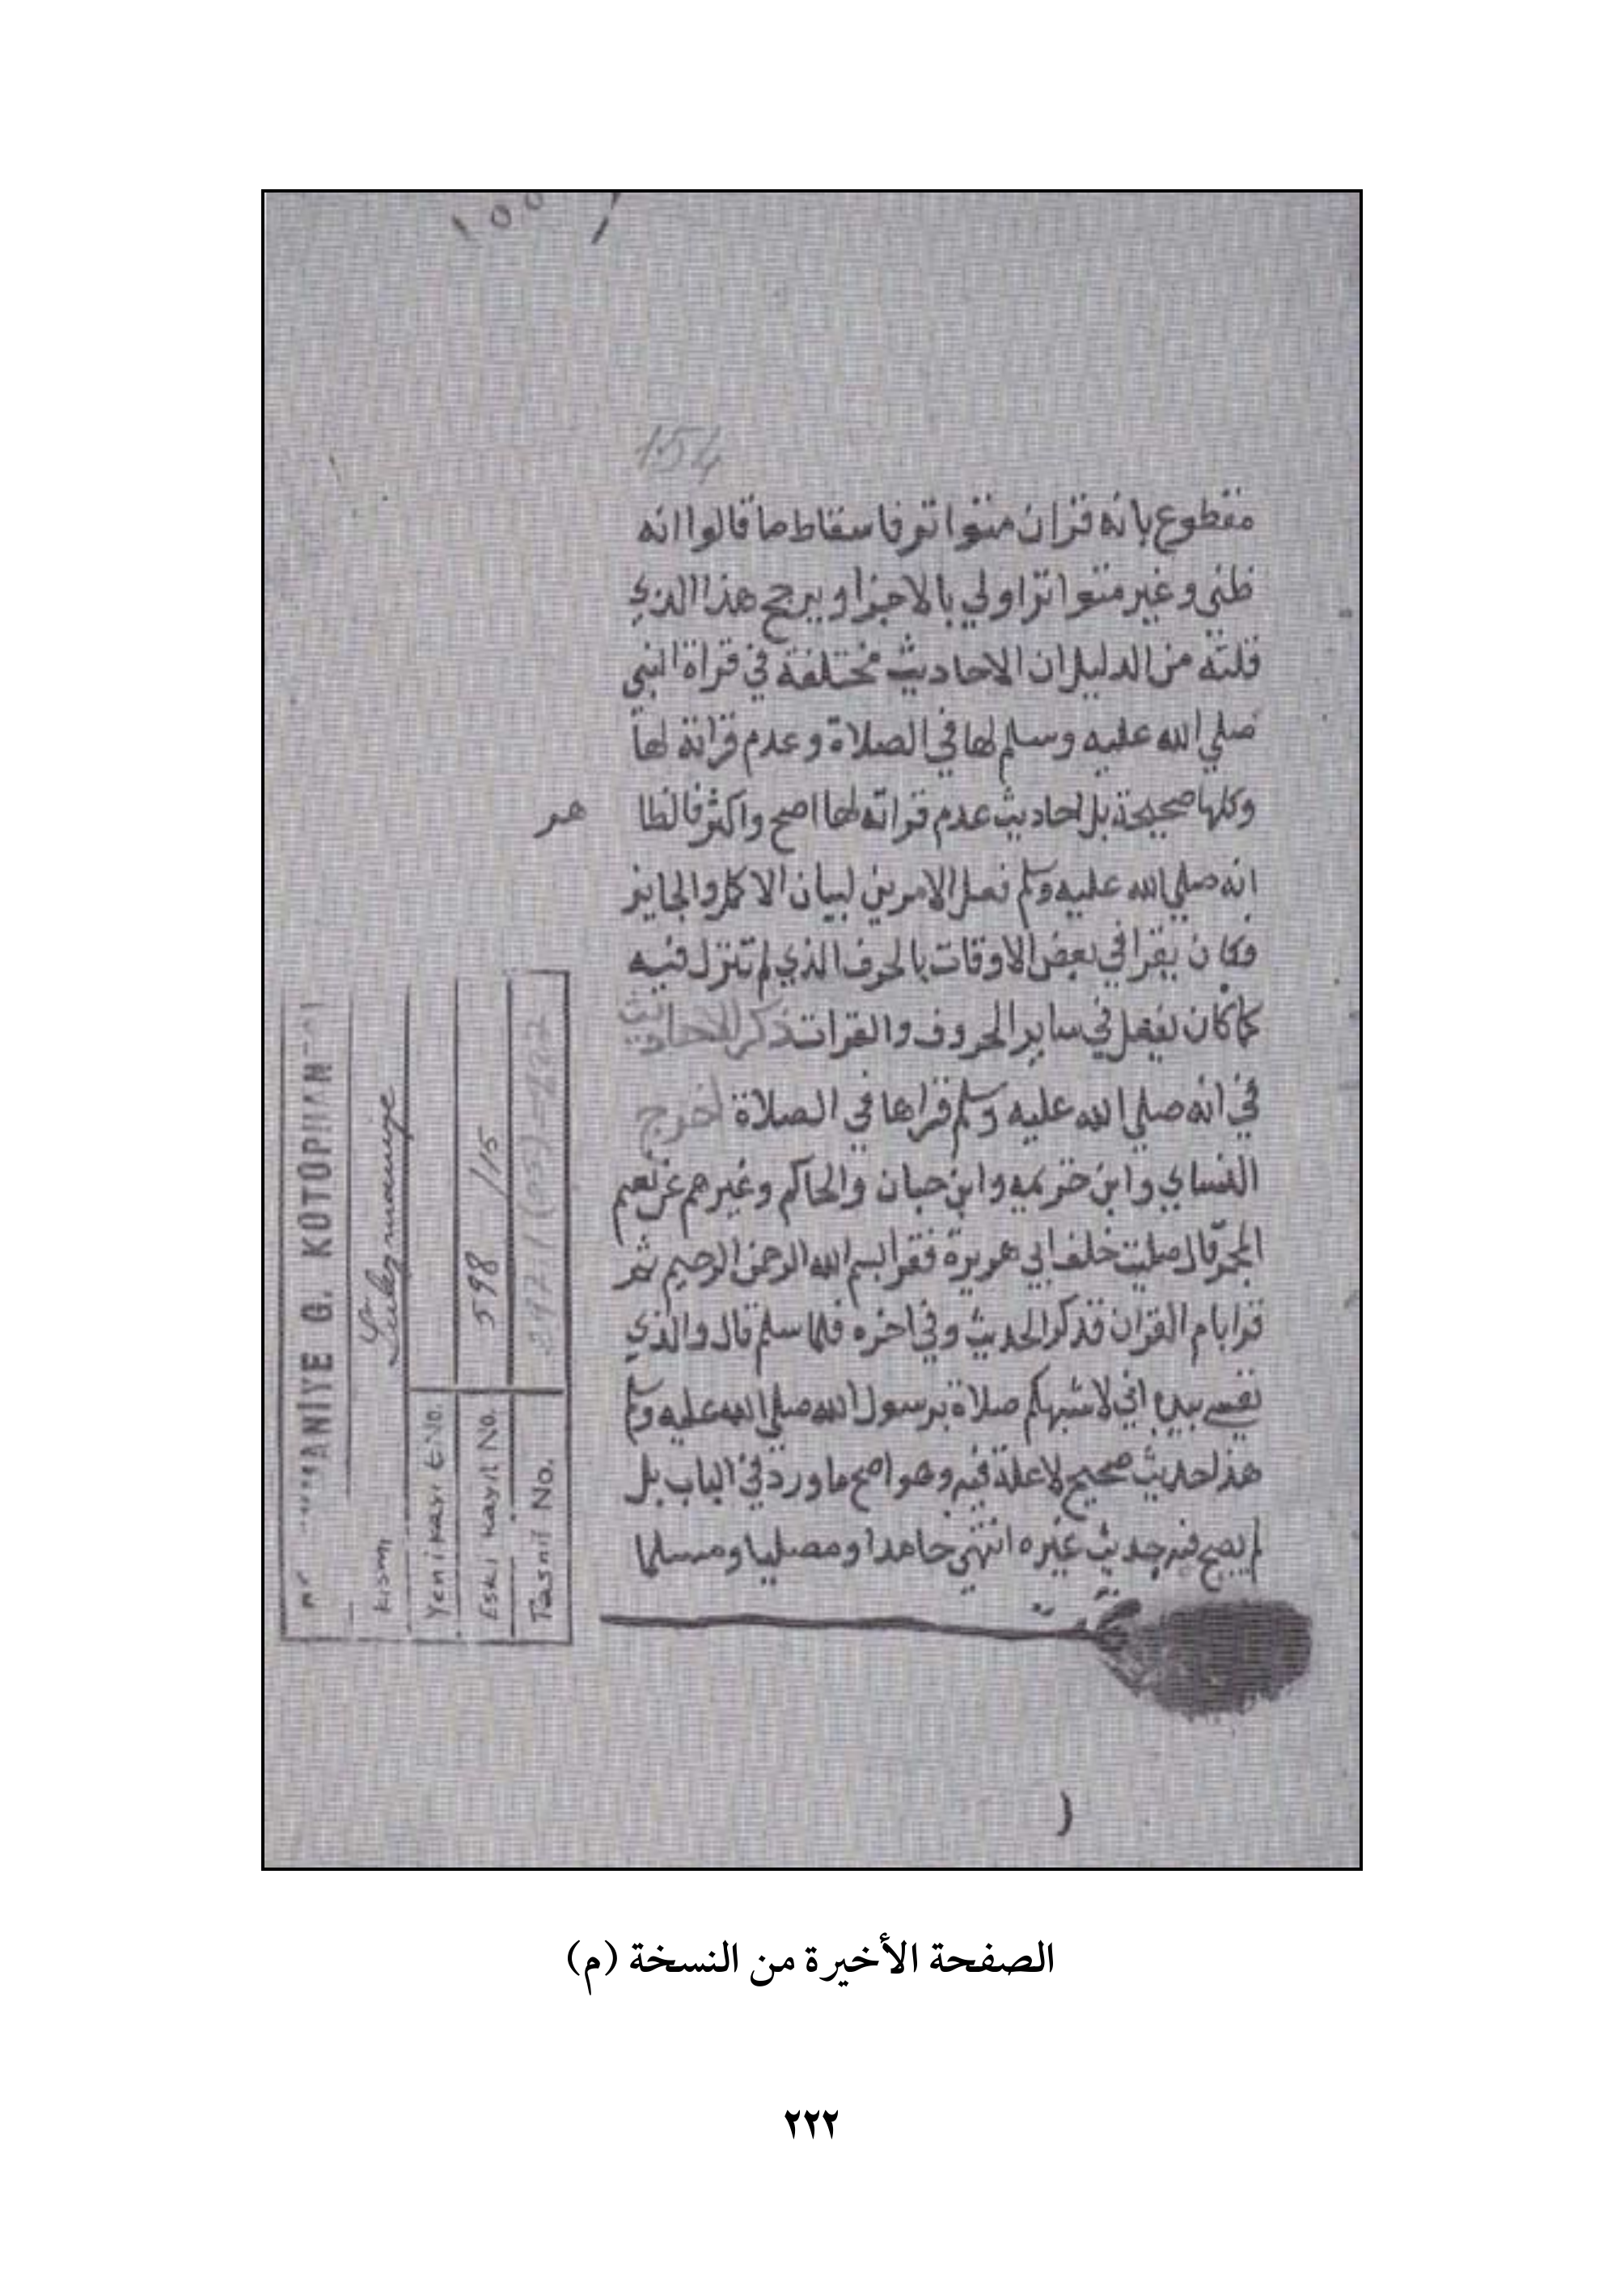 154
مقطوع بانه قران متواتر فاسقاط ما قالوا انه
ظني وغير متواتر اولي بالاجزا ويرجح هذا الذي
قلته من الدليل ان الاحاديث مختلفة في قراة النبي
صلي الله عليه وسلم لها في الصلاة وعدم قراته لها
وكلها صحيحة بل احاديث عدم قراته لها اصح واكثر فالظا
هر
انه صلي الله عليه وسلم فعل الامرين لبيان الاكمل والجايز
فكان يقرا في بعض الاوقات بالحرف الذي لم تنزل فيه
كما كان يفعل في ساير الحروف والقرات ذكر الاحاديث
في انه صلي الله عليه وسلم قراها في الصلاة اخرج
النساي وابن خزيمه وابن حبان والحاكم وغيرهم عن نعيم
المجمر قال صليت خلف ابي هريرة فقرا بسم الله الرحمن الرحيم ثم
قرا بام القران فذكر الحديث وفي اخره فلما سلم قال والذي
نفسي بيده اني لاشبهكم صلاة برسول الله صلي الله عليه وسلم
هذا حديث صحيح لا علة فيه وهو اصح ما ورد في الباب بل
لم يصح فيه حديث غيره انتهي حامدا ومصليا ومسلما
ANİYE G. KÜTÜPHAN
Kısmı Süleymaniye
Yeni Kayıt No.
Eski Kayıt No. 598 /15
Tasnif No. 297.1
الصفحة الأخيرة من النسخة (م)
٢٢٢